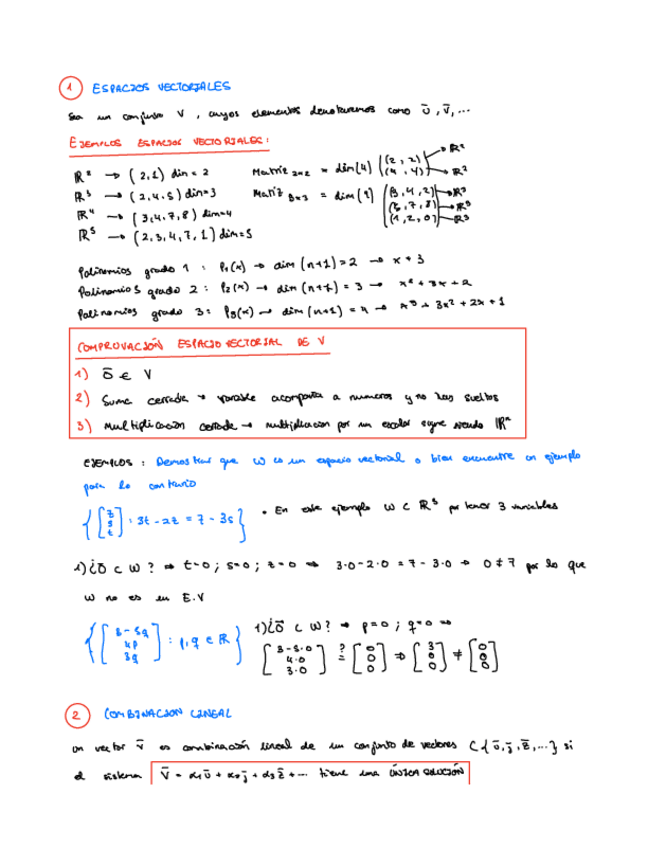 1 ESPACIOS VECTORIALES
Sea un conjunto V, cuyos elementos denotaremos como ū, v̄, ...
EJEMPLOS ESPACIOS VECTORIALES:
ℝ² → (2,1) dim = 2
ℝ³ → (2,4,5) dim=3
ℝ⁴ → (3,4,7,8) dim=4
ℝ⁵ → (2,3,4,7,1) dim=5
Matriz 2x2 = dim(4) (2,2) → ℝ² (4,4) → ℝ²
Matriz 3x3 = dim(9) (3,4,2) → ℝ³ (5,7,8) → ℝ³ (1,2,0) → ℝ³
Polinomios grado 1 : P₁(x) → dim (n+1)=2 → x + 3
Polinomios grado 2 : P₂(x) → dim (n+1) = 3 → x² + 3x + 2
Polinomios grado 3: P₃(x) → dim (n+1) = 4 → x³ + 3x² + 2x + 1
COMPROVACIÓN ESPACIO VECTORIAL DE V
1) ō ∈ V
2) Suma cerrada → variable acompaña a numeros y no hay sueltos
3) Multiplicación cerrada → multiplicacion por un escalar sigue siendo ℝⁿ
EJEMPLOS : Demostrar que W es un espacio vectorial o bien encuentre un ejemplo
para lo contrario
{[z s t] : 3t - 2z = 7 - 3s}
• En este ejemplo W ⊂ ℝ³ por tener 3 variables
1) ¿ō ⊂ W? ⇒ t=0 ; s=0 ; z=0 ⇒ 3·0 - 2·0 = 7 - 3·0 ⇒ 0 ≠ 7 por lo que
W no es un E.V
{[3 - 5q 4p 3q] : p,q ∈ ℝ}
1) ¿ō ⊂ W? ⇒ p=0 ; q=0 ⇒
[3-5·0 4·0 3·0] ?= [0 0 0] ⇒ [3 0 0] ≠ [0 0 0]
2 COMBINACION LINEAL
un vector v̄ es combinación lineal de un conjunto de vectores C{ū, j̄, z̄, ...} si
el sistema v̄ = α₁ū + α₂j̄ + α₃z̄ + ... tiene una ÚNICA SOLUCIÓN